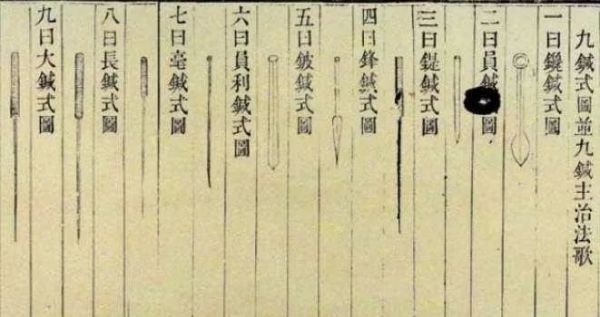 九鍼式圖並九鍼主治法歌
一曰鑱鍼式圖
二曰員鍼式圖
三曰鍉鍼式圖
四曰鋒鍼式圖
五曰鈹鍼式圖
六曰員利鍼式圖
七曰毫鍼式圖
八曰長鍼式圖
九曰大鍼式圖